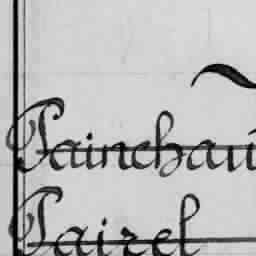 Painchau
Pairel